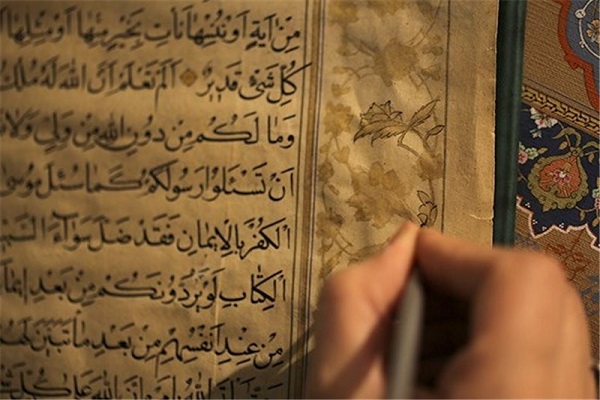 مِنْ آيَةٍ أَوْ نُنْسِهَا نَأْتِ بِخَيْرٍ مِنْهَا أَوْ مِثْلِهَا
كُلِّ شَيْءٍ قَدِيرٌ أَلَمْ تَعْلَمْ أَنَّ اللهَ لَهُ مُلْكُ
وَمَا لَكُمْ مِنْ دُونِ اللهِ مِنْ وَلِيٍّ وَلَا
أَنْ تَسْئَلُوا رَسُولَكُمْ كَمَا سُئِلَ مُوسَى
الْكُفْرَ بِالْإِيمَانِ فَقَدْ ضَلَّ سَوَآءَ
الْكِتَابِ لَوْ يَرُدُّونَكُمْ مِنْ بَعْدِ
مِنْ عِنْدِ أَنْفُسِهِمْ مِنْ بَعْدِ مَا تَبَيَّنَ
اللهُ بِأَمْرِهِ إِنَّ اللهَ عَلَى كُلِّ